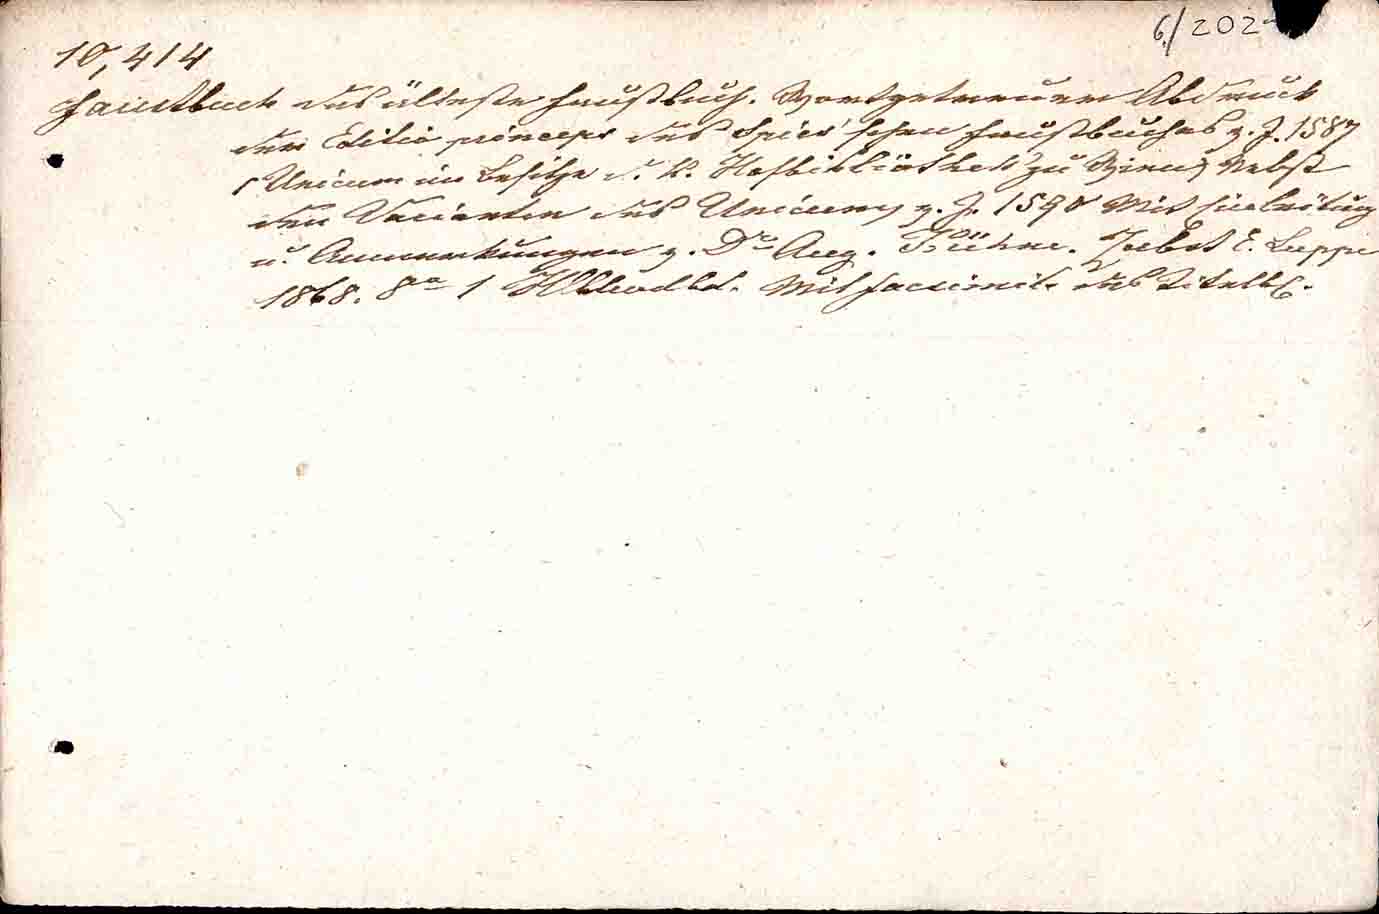 6/202
10,414
Faustbuch das älteste Faustbuch. Wortgetreuer Abdruck
der Editio princeps des Spies'schen Faustbuches v. J. 1587
(Unicum im Besitze d. k. Hofbibliothek zu Wien) Nebst
den Varianten des Unicums v. J. 1590 Mit Einleitung
u. Anmerkungen v. Dr Aug. Kühne. Zerbst E. Luppe
1868. 8o 1 Hblwdbd. Mit facsimile des Titelbl.